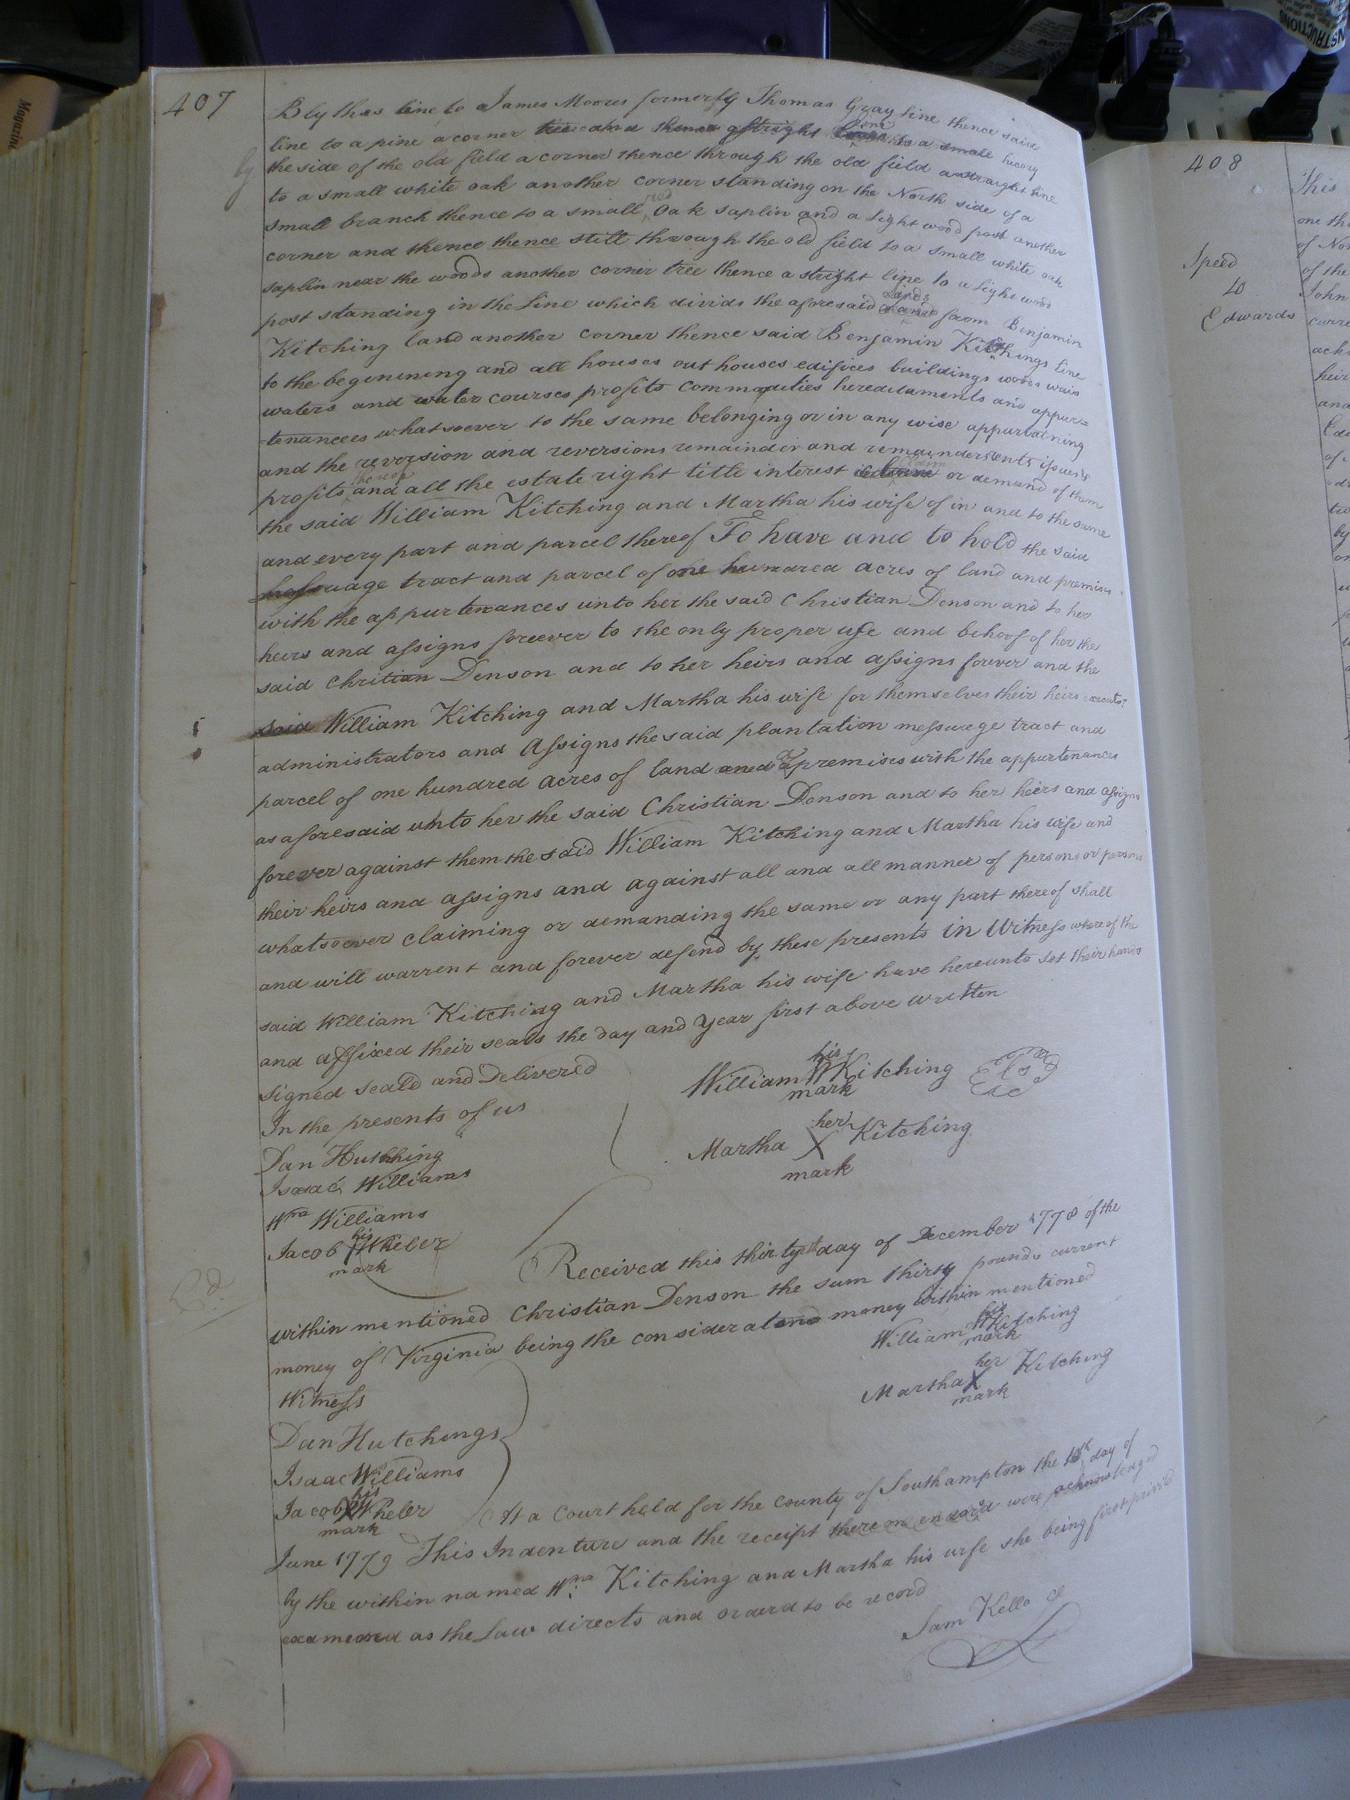 407
Blythes line to James Moores formerly Thomas Gray line thence said
line to a pine a corner tree and thence a straight line to a small hicory
the side of the old field a corner thence through the old field a straight line
to a small white oak another corner standing on the North side of a
small branch thence to a small red Oak saplin and a light wood post another
corner and thence thence still through the old field to a small white oak
saplin near the woods another corner tree thence a streight line to a light wood
post standing in the line which divids the aforesaid lands from Benjamin
Kitching land another corner thence said Benjamin Kitchings line
to the beginning and all houses out houses edifices buildings woods
waters and water courses profits commodities hereditaments and appur=
tenances whatsoever to the same belonging or in any wise appurtaining
and the reversion and reversions remainder and remainders rents issues
profits thereof and all the estate right title interest claim or demand of them
the said William Kitching and Martha his wife of in and to the same
and every part and parcel thereof To have and to hold the said
messuage tract and parcel of one hundred acres of land and premises
with the appurtenances unto her the said Christian Denson and to her
heirs and assigns forever to the only proper use and behoof of her the
said Chritian Denson and to her heirs and assigns forever and the
said William Kitching and Martha his wife for themselves their heirs
administrators and Assigns the said plantation messuage tract and
parcel of one hundred acres of land and premises with the appurtenances
as aforesaid unto her the said Christian Denson and to her heirs and assigns
forever against them the said William Kitching and Martha his wife and
their heirs and assigns and against all and all manner of persons or persons
whatsoever claiming or demanding the same or any part thereof shall
and will warrent and forever defend by these presents in Witness whereof the
said William Kitching and Martha his wife have hereunto set their hands
and affixed their seals the day and year first above written
Signed seald and Delivered
In the presents of us
William his W mark Kitching
Martha her X mark Kitching
Dan Hutching
Isaac Williams
Wm Williams
Jacob his mark Wheler
Received this thirtyeth day of December 1778 of the
within mentioned Christian Denson the sum thirty pounds current
money of Virginia being the consideration money within mentioned
William his W mark Kitching
Martha her X mark Kitching
Witness
Dan Hutchings
Isaac Williams
Jacob his X mark Wheler
At a Court held for the county of Southampton the day of
June 1779 This Indenture and the receipt thereon were acknowledged
by the within named Wm Kitching and Martha his wife she being first privily
examened as the Law directs and orderd to be record
Sam Kello Cl
408
Speed
to
Edwards
This
of the
John
and
by